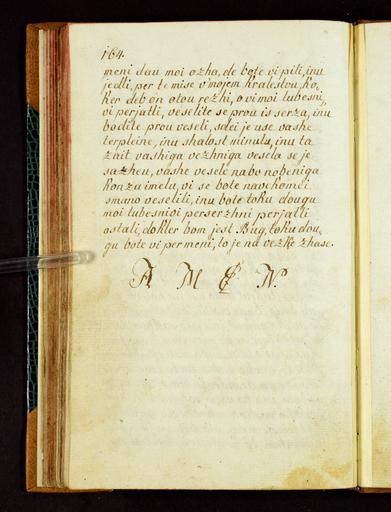 164.
meni dau moi ozha, de bote vi pili, inu
jedli, per te mise v'mojem kralestvu, ko-
ker deb ǒn otou rezhi, o vi moi lubesni,
vi perjatli, veselite se prou is serza, inu
bodite prou veseli, sdei je use vashe
terpleine, inu shalost minula, inu ta
zait vashiga vezhniga vesela se je
sazheu, vashe vesele nabo nobeniga
konza imelu, vi se bote navekomei
smano veselili, inu bote toku dougu
moi lubesnivi perserzhni perjatli
ostali, dokler bom jest Bug, toku dou-
gu bote vi permeni, to je na vezhe zhase.
A M E N.